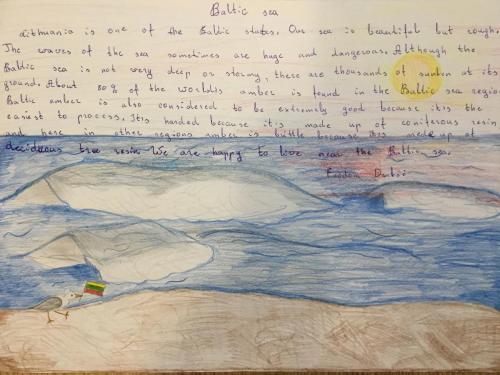 Baltic sea
Lithuania is one of the Baltic states. Our sea is beautiful but rough.
The waves of the sea sometimes are huge and dangerous. Although the
Baltic sea is not very deep or stormy, there are thousands of sunken at its
ground. About 80% of the world's amber is found in the Baltic sea region
Baltic amber is also considered to be extremely good because it's the
easiest to process. It's harded because it is made up of coniferous resin
and here in other regions amber is brittle because it is made up of
deciduous tree resin. We are happy to live near the Baltic sea.